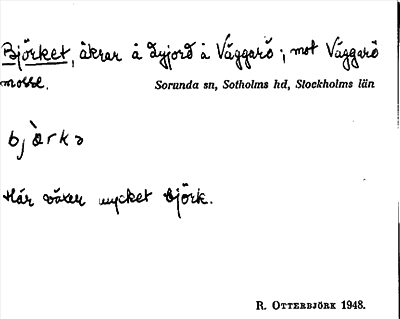 Björket, åkrar å dyjord å Väggarö; mot Väggarö
mosse.
Sorunda sn, Sotholms hd, Stockholms län
bj̀örkə
Här växer mycket björk.
R. OTTERBJÖRK 1948.